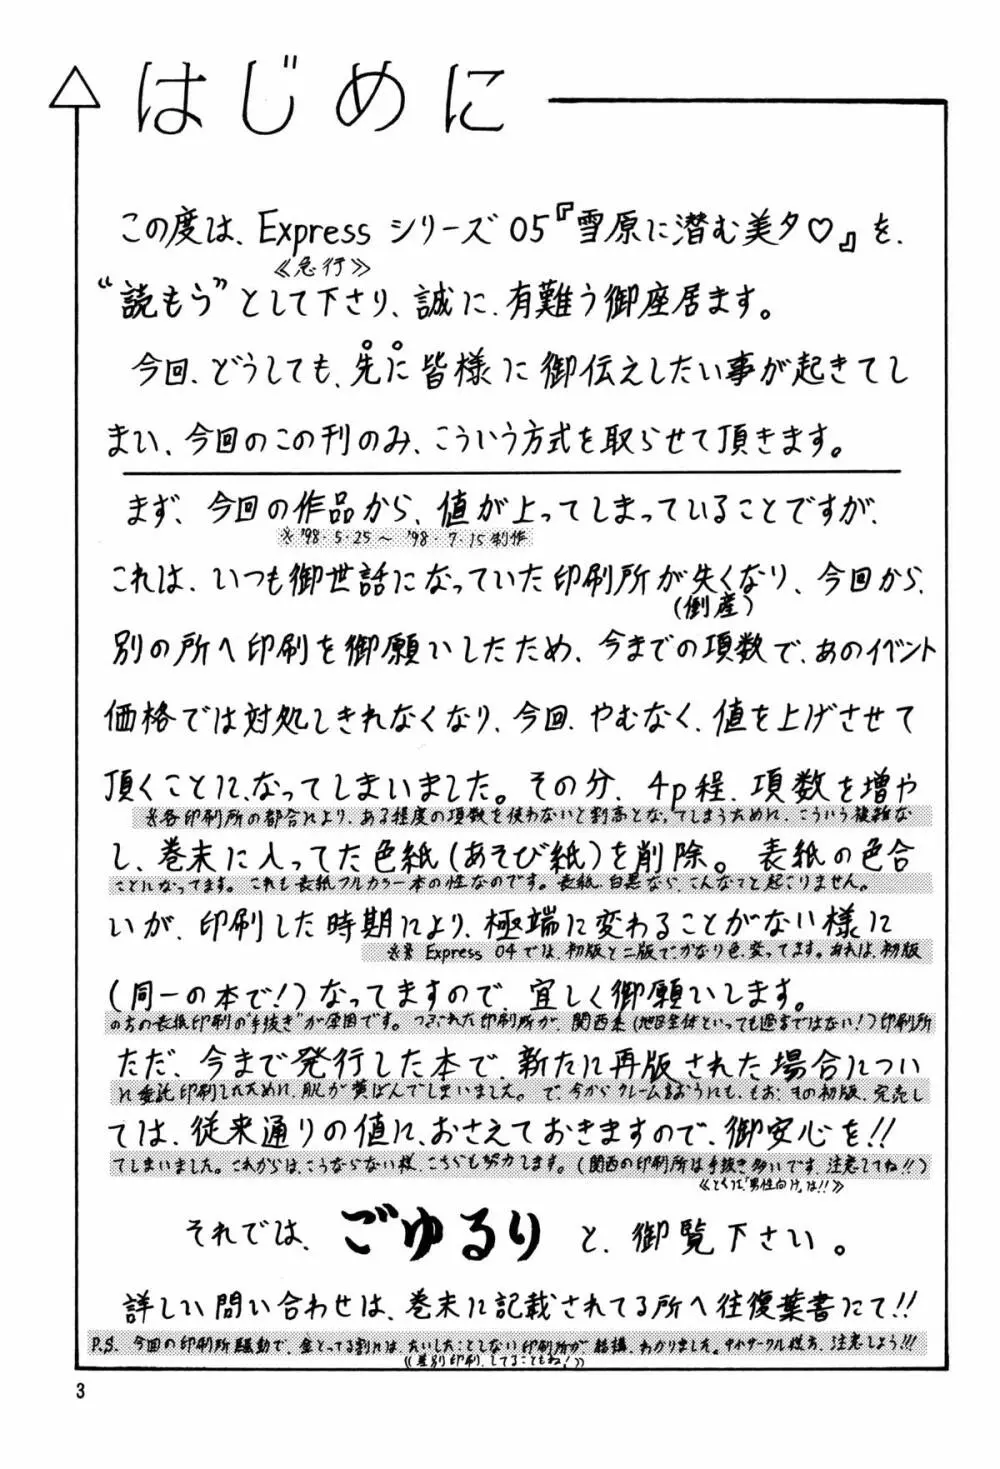 はじめに
この度は、Expressシリーズ05『雪原に潜む美夕♡』を、
《急行》
“読もう”として下さり、誠に、有難う御座居ます。
今回、どうしても、先に皆様に御伝えしたい事が起きてし
まい、今回のこの刊のみ、こういう方式を取らせて頂きます。
まず、今回の作品から、値が上ってしまっていることですが、
※'98・5・25〜'98・7・15制作
これは、いつも御世話になっていた印刷所が失くなり、今回から、
(倒産)
別の所へ印刷を御願いしたため、今までの項数で、あのイベント
価格では対処しきれなくなり、今回、やむなく、値を上げさせて
頂くことに、なってしまいました。その分、4p程、項数を増や
※各印刷所の都合により、ある程度の項数を使わないと割高となってしまうために、こういう複雑な
し、巻末に入ってた色紙(あそび紙)を削除。表紙の色合
ことになってます。これも表紙フルカラー本の性なのです。表紙、白黒なら、こんなこと起こりません。
いが、印刷した時期により、極端に変わることがない様に
※※ Express 04では、初版と二版で、かなり色、変ってます。あれは、初版
(同一の本で!)なってますので、宜しく御願いします。
のちの表紙印刷の“手抜き”が原因です。つぶれた印刷所が、関西系(地区全体といっても過言ではない!)印刷所
ただ、今まで発行した本で、新たに再版された場合につい
に委託印刷したために、肌が黄ばんでしまいました。で、今からクレームをおうにも、もお、その初版、完売し
ては、従来通りの値に、おさえておきますので、御安心を!!
てしまいました。これからは、こうならない様、こちらも努力します。(関西の印刷所は手抜き多いです、注意してね!!)
《とくに「男性向け」は!!》
それでは、ごゆるりと、御覧下さい。
詳しい問い合わせは、巻末に記載されてる所へ往復葉書にて!!
P.S. 今回の印刷所騒動で、金とってる割には、たいしたことしない印刷所が、結構、わかりました。サークル様方、注意しよう!!!
《差別印刷、してることもね!》
3